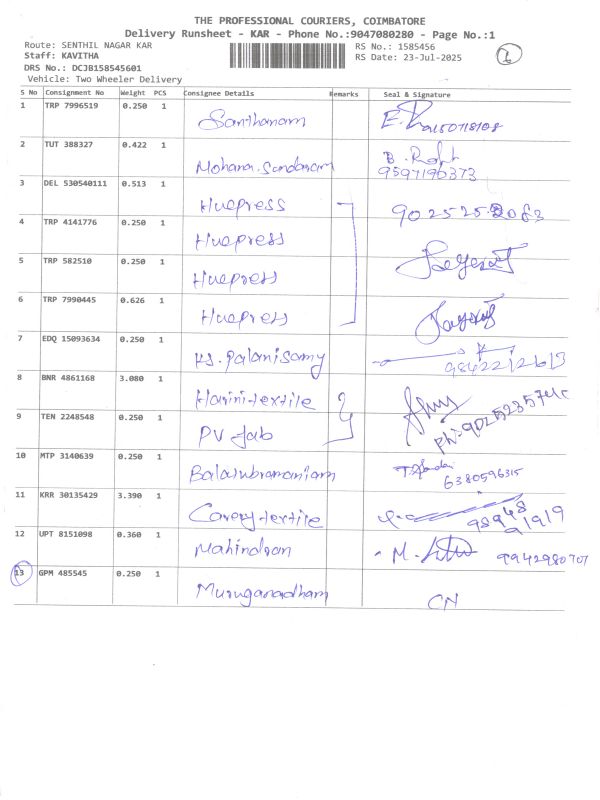 THE PROFESSIONAL COURIERS, COIMBATORE
Delivery Runsheet - KAR - Phone No.:9047080280 - Page No.:1
Route: SENTHIL NAGAR KAR RS No.: 1585456 1
Staff: KAVITHA RS Date: 23-Jul-2025
DRS No.: DCJB158545601
Vehicle: Two Wheeler Delivery
S No Consignment No Weight PCS Consignee Details Remarks Seal & Signature
1 TRP 7996519 0.250 1 Santhanam
2 TUT 388327 0.422 1 Mohana Sundaram B. 9597196373
3 DEL 530540111 0.513 1 Huepress
4 TRP 4141776 0.250 1 Huepress
5 TRP 582510 0.250 1 Huepress
6 TRP 7990445 0.626 1 Huepress
7 EDQ 15093634 0.250 1 Ks. Palanisamy 9842212613
8 BNR 4861168 3.080 1 Harini textile
9 TEN 2248548 0.250 1 PV fab
10 MTP 3140639 0.250 1 Balasubramaniam 6380596315
11 KRR 30135429 3.390 1 Cavery textile 98948 91919
12 UPT 8151098 0.360 1 Mahindran M. 9942980707
13 GPM 485545 0.250 1 Muruganadham CN